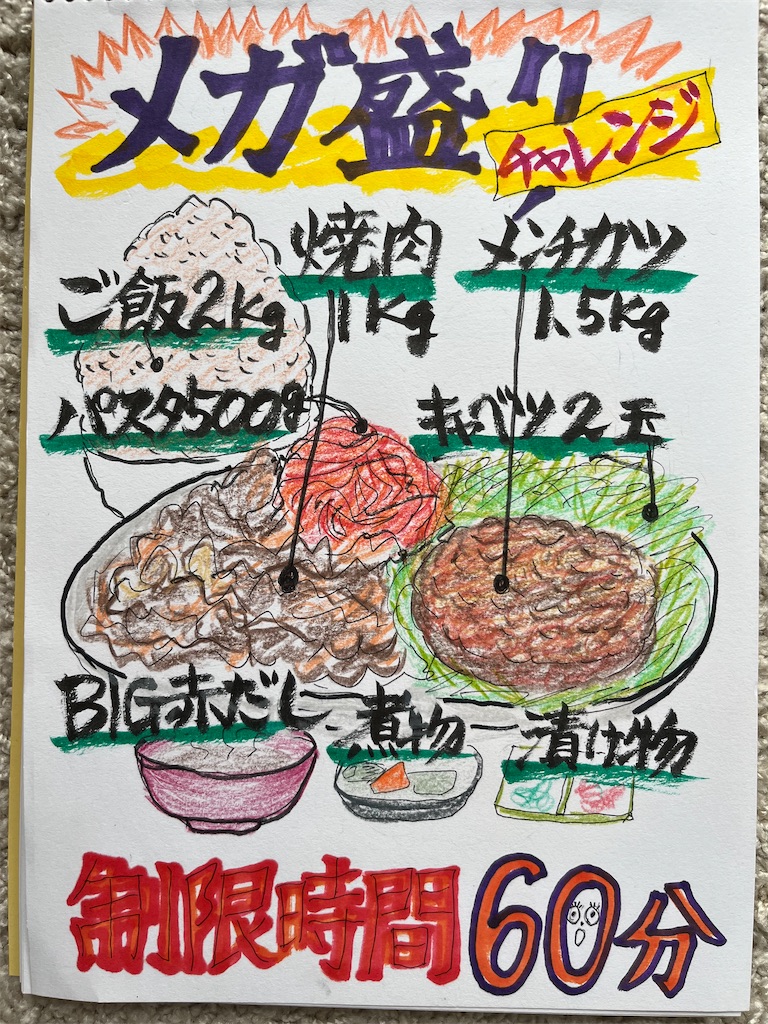 メガ盛り
チャレンジ
ご飯2kg
焼肉
1kg
メンチカツ
1.5kg
パスタ500g
キャベツ2玉
BIG赤だし
煮物
漬け物
制限時間60分